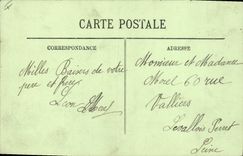 CARTE POSTALE
CORRESPONDANCE
Milles Baisers de votre
Léon Morel
ADRESSE
Monsieur et Madame
Morel 60 rue
Valliers
Levallois Perret
Seine